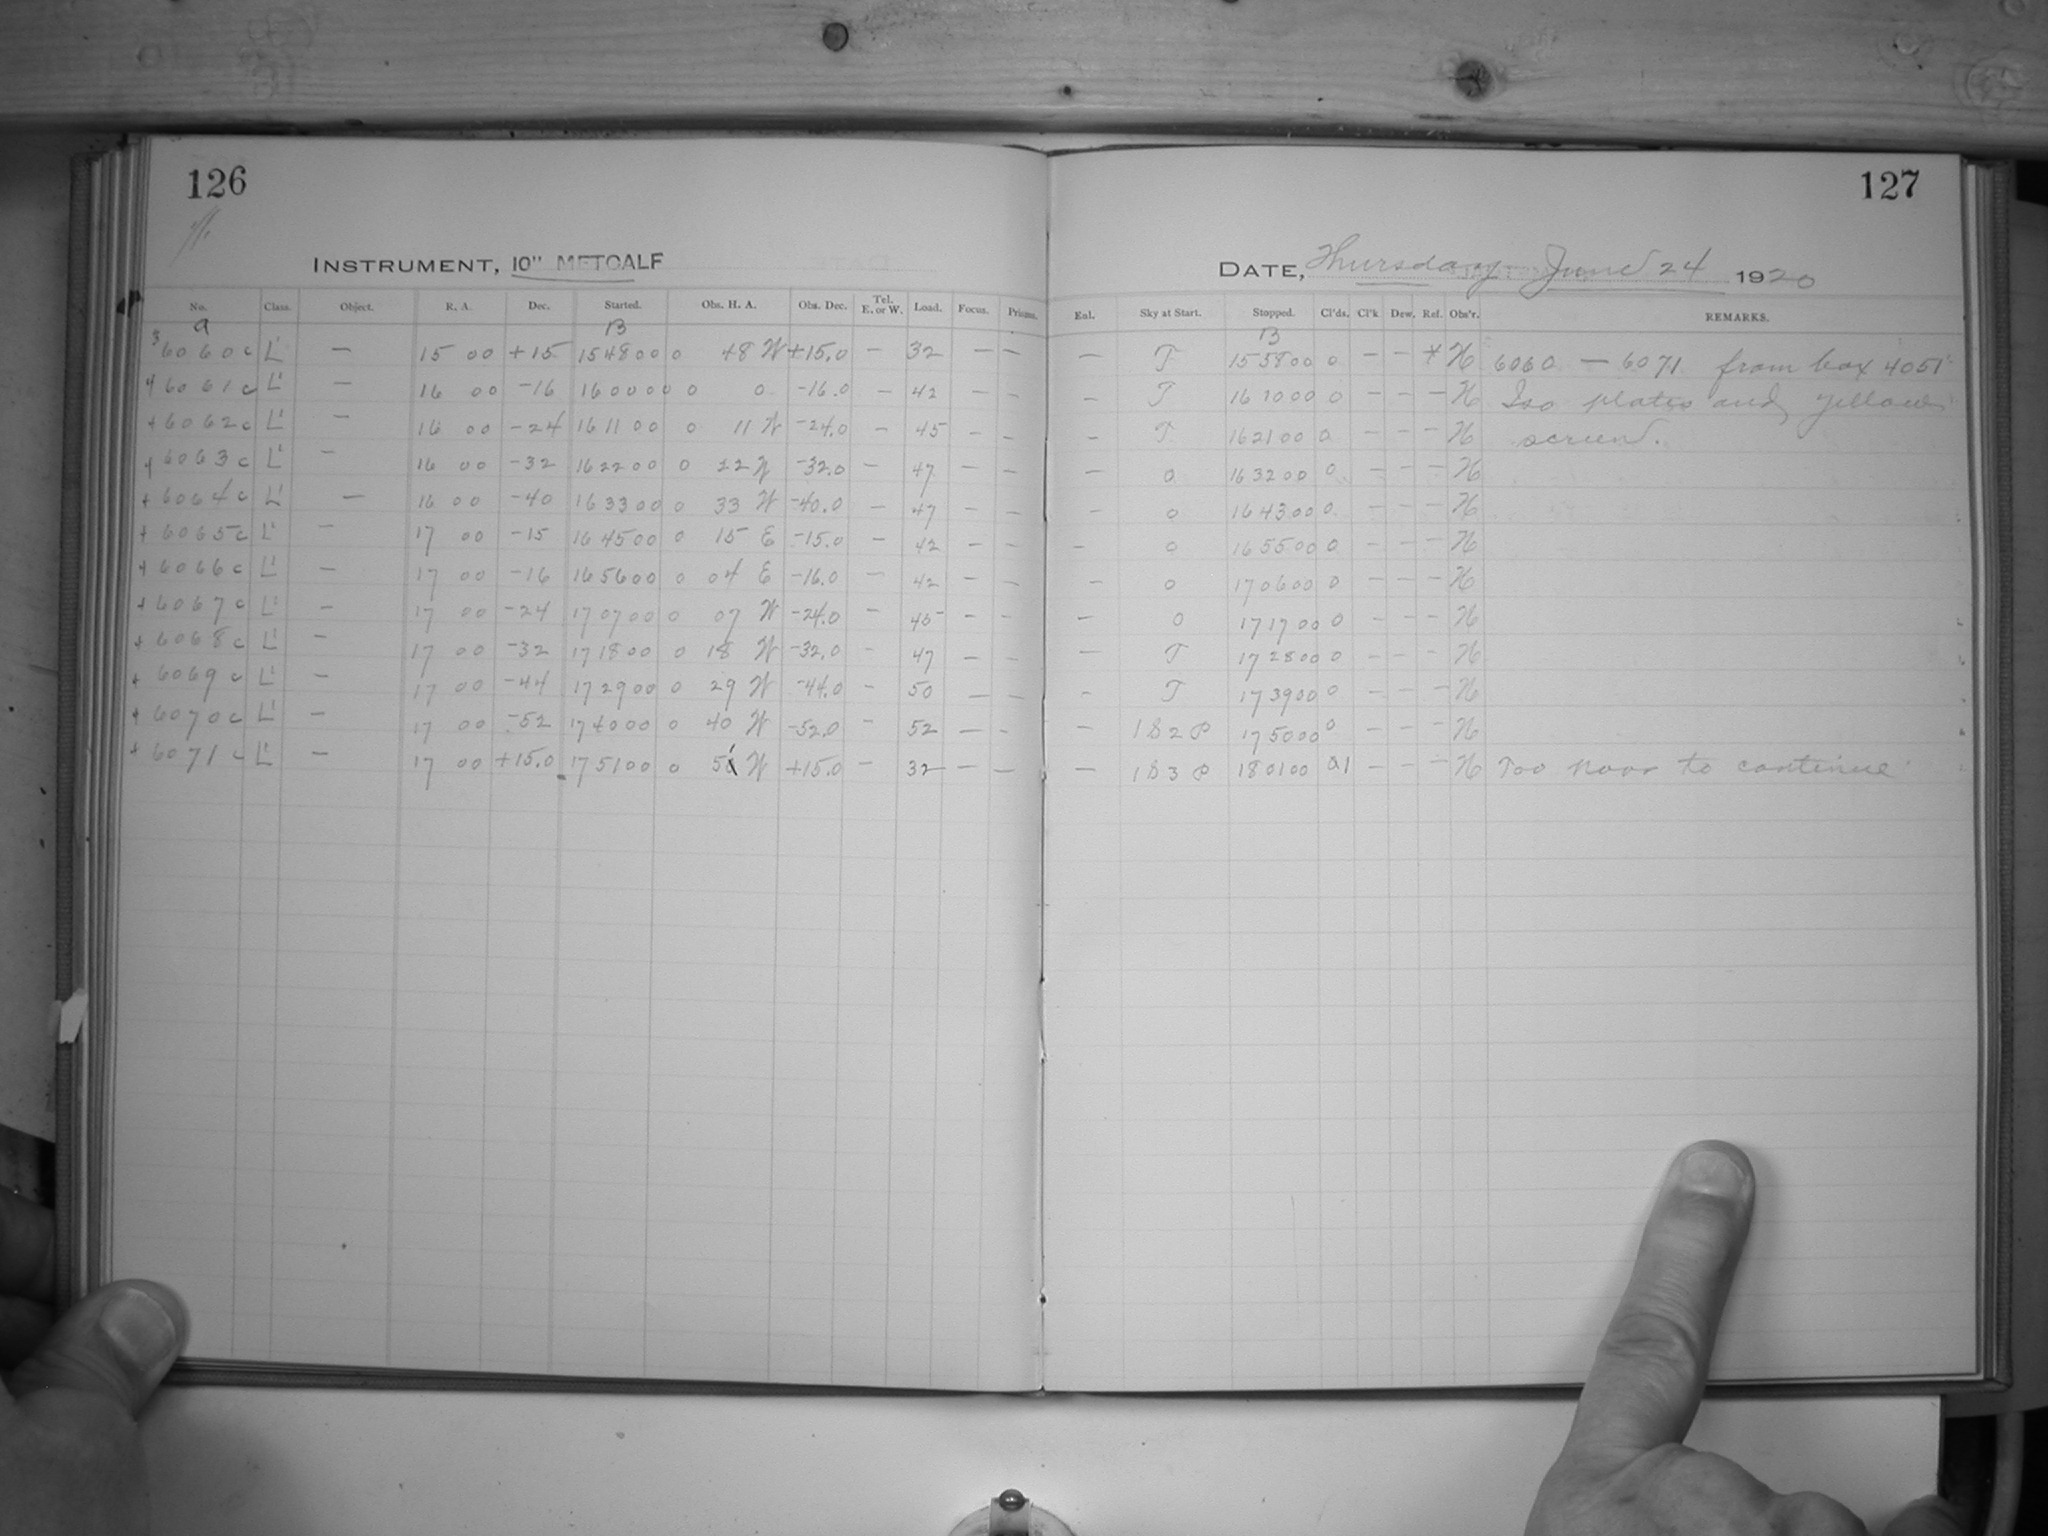 126
127
INSTRUMENT, 10" METCALF
DATE, Thursday June 24 1920
No. Class. Object. R. A. Dec. Started. Obs. H. A. Obs. Dec. Tel. E. or W. Load. Focus. Prisms. Enl. Sky at Start. Stopped. Cl'ds. Cl'k Dew. Ref. Obs'r. REMARKS.
a B B
3 6060 c L' — 15 00 +15 15 48 00 0 48 W +15.0 — 32 — — — T 15 58 00 0 — — * H 6060 — 6071 from box 4051
4 6061 c L' — 16 00 -16 16 00 00 0 0 -16.0 — 42 — — — T 16 10 00 0 — — — H Iso plates and yellow
+ 6062 c L' — 16 00 -24 16 11 00 0 11 W -24.0 — 45 — — — T 16 21 00 0 — — — H screen.
4 6063 c L' — 16 00 -32 16 22 00 0 22 W -32.0 — 47 — — — 0 16 32 00 0 — — — H
+ 6064 c L' — 16 00 -40 16 33 00 0 33 W -40.0 — 47 — — — 0 16 43 00 0 — — — H
+ 6065 c L' — 17 00 -15 16 45 00 0 15 E -15.0 — 42 — — — 0 16 55 00 0 — — — H
+ 6066 c L' — 17 00 -16 16 56 00 0 04 E -16.0 — 42 — — — 0 17 06 00 0 — — — H
+ 6067 c L' — 17 00 -24 17 07 00 0 07 W -24.0 — 45 — — — 0 17 17 00 0 — — — H
+ 6068 c L' — 17 00 -32 17 18 00 0 18 W -32.0 — 47 — — — T 17 28 00 0 — — — H
+ 6069 c L' — 17 00 -44 17 29 00 0 29 W -44.0 — 50 — — — T 17 39 00 0 — — — H
+ 6070 c L' — 17 00 -52 17 40 00 0 40 W -52.0 — 52 — — — 1 S 2 P 17 50 00 0 — — — H
+ 6071 c L' — 17 00 +15.0 17 51 00 0 51 W +15.0 — 32 — — — 1 S 3 P 18 01 00 01 — — — H Too poor to continue